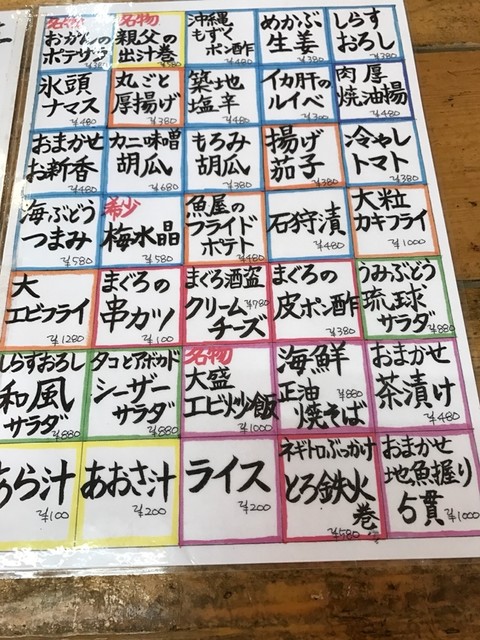 名物
おかんの
ポテサラ
名物
親父の
出汁巻
沖縄
もずく
ポン酢
¥480
めかぶ
生姜
¥380
しらす
おろし
¥380
氷頭
ナマス
¥480
丸ごと
厚揚げ
¥380
築地
塩辛
¥480
イカ肝の
ルイベ
¥300
肉厚
焼油揚
¥480
おまかせ
お新香
¥480
カニ味噌
胡瓜
¥680
もろみ
胡瓜
¥380
揚げ
茄子
¥380
冷やし
トマト
¥380
海ぶどう
つまみ
¥580
希少
梅水晶
¥580
魚屋の
フライド
ポテト
¥480
石狩漬
¥480
大粒
カキフライ
¥1000
大
エビフライ
¥1280
まぐろの
串カツ
¥100
まぐろ酒盗
クリーム ¥780
チーズ
まぐろの
皮ポン酢
¥380
うみぶどう
琉球
サラダ
¥880
しらすおろし
和風
サラダ
¥880
タコとアボカド
シーザー
サラダ
¥880
名物
大盛
エビ炒飯
¥1000
海鮮
正油 ¥880
焼そば
おまかせ
茶漬け
¥480
あら汁
¥100
あおさ汁
¥200
ライス
¥200
ネギトロぶっかけ
とろ鉄火
巻
¥580
おまかせ
地魚握り
5貫
¥1000